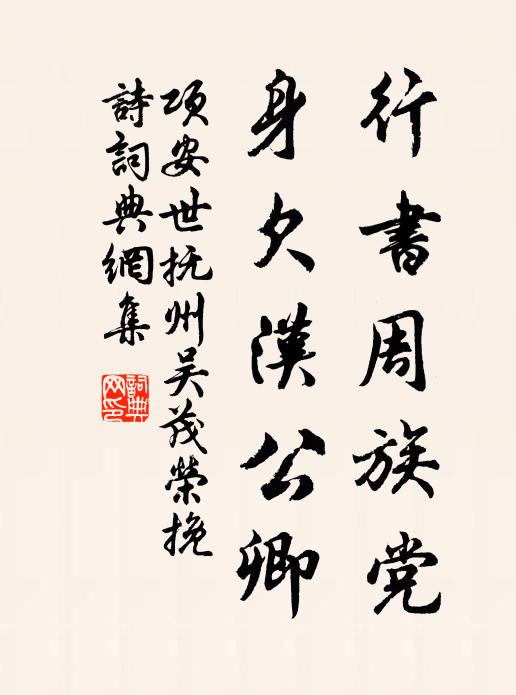 行書周族党
身欠漢公卿
项安世抚州吴茂榮挽
詩詞典網集
詞典網印